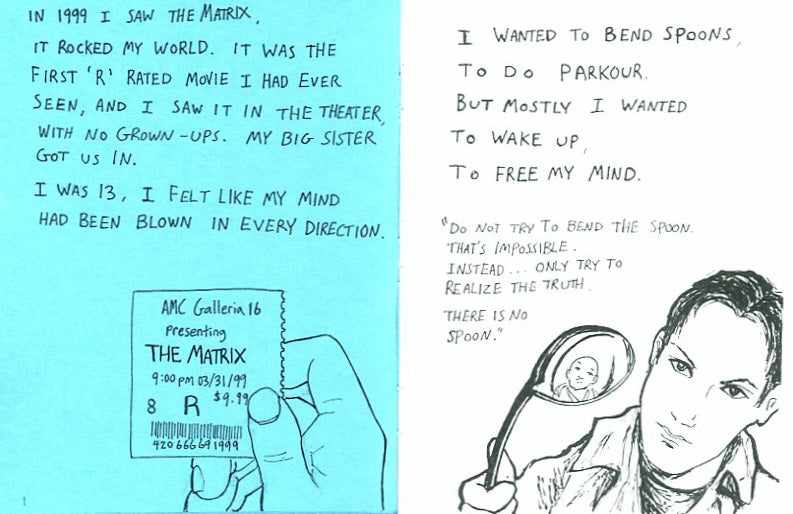 IN 1999 I SAW THE MATRIX,
IT ROCKED MY WORLD. IT WAS THE
FIRST 'R' RATED MOVIE I HAD EVER
SEEN, AND I SAW IT IN THE THEATER,
WITH NO GROWN-UPS. MY BIG SISTER
GOT US IN.
I WAS 13, I FELT LIKE MY MIND
HAD BEEN BLOWN IN EVERY DIRECTION.
AMC Galleria 16
Presenting
THE MATRIX
9:00 pm 03/31/99
8 R $9.99
420666691999
1
I WANTED TO BEND SPOONS,
TO DO PARKOUR.
BUT MOSTLY I WANTED
TO WAKE UP,
TO FREE MY MIND.
"DO NOT TRY TO BEND THE SPOON.
THAT'S IMPOSSIBLE.
INSTEAD... ONLY TRY TO
REALIZE THE TRUTH.
THERE IS NO
SPOON."